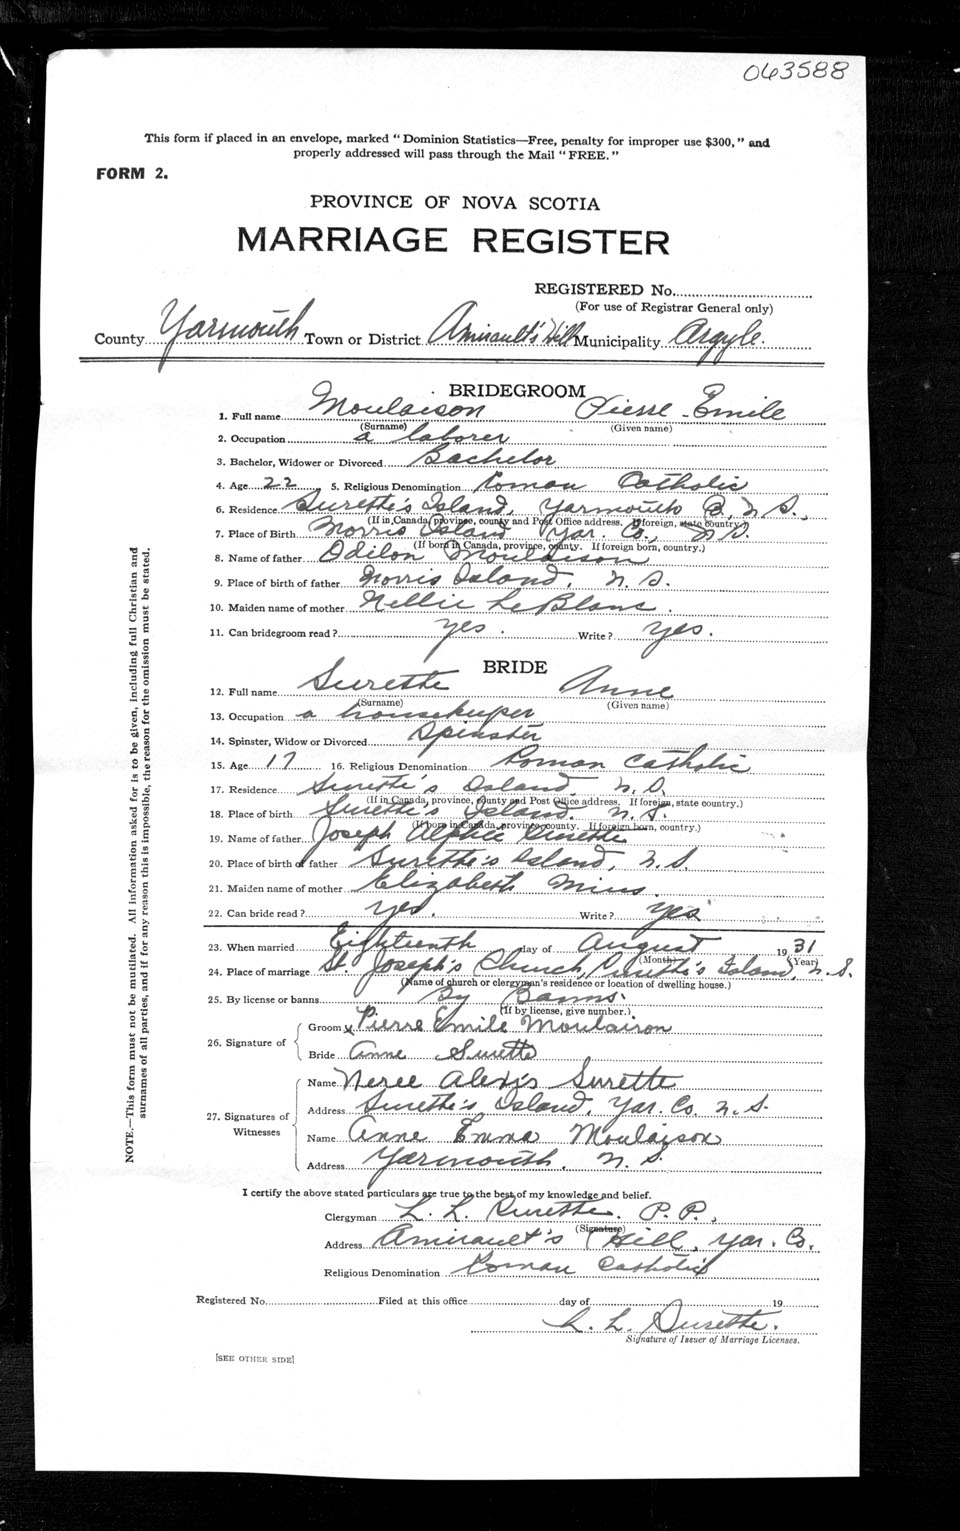 063588
This form if placed in an envelope, marked "Dominion Statistics—Free, penalty for improper use $300," and
properly addressed will pass through the Mail "FREE."
FORM 2.
PROVINCE OF NOVA SCOTIA
MARRIAGE REGISTER
REGISTERED No.
(For use of Registrar General only)
County Yarmouth Town or District Amirault's Hill Municipality Argyle.
BRIDEGROOM
1. Full name Moulaison Pierre Emile
(Surname) (Given name)
2. Occupation a laborer
3. Bachelor, Widower or Divorced Bachelor
4. Age 22 5. Religious Denomination Roman Catholic
6. Residence Surette's Island, Yarmouth Co, N.S.,
(If in Canada, province, county and Post Office address. If foreign, state country.)
7. Place of Birth Morris Island Yar. Co., N.S.
(If born in Canada, province, county. If foreign born, country.)
8. Name of father Odilon Moulaison
9. Place of birth of father Morris Island, N.S.
10. Maiden name of mother Nellie LeBlanc.
11. Can bridegroom read? yes. Write? yes.
BRIDE
12. Full name Surette Anne
(Surname) (Given name)
13. Occupation a housekeeper
14. Spinster, Widow or Divorced Spinster
15. Age 17 16. Religious Denomination Roman Catholic
17. Residence Surette's Island, N.S.
(If in Canada, province, county and Post Office address. If foreign, state country.)
18. Place of birth Surette's Island. N.S.
(If born in Canada, province, county. If foreign born, country.)
19. Name of father Joseph Surette
20. Place of birth of father Surette's Island, N.S.
21. Maiden name of mother Elizabeth Mius.
22. Can bride read? yes. Write? yes
23. When married Eighteenth day of August 1931
(Month) (Year)
24. Place of marriage St. Joseph's Church, Surette's Island, N.S.
(Name of church or clergyman's residence or location of dwelling house.)
25. By license or banns By Banns.
(If by license, give number.)
26. Signature of
Groom x Pierre Emile Moulaison
Bride Anne Surette
27. Signatures of Witnesses
Name Neree Alexis Surette
Address Surette's Island, Yar. Co. N.S.
Name Anne Emma Moulaison
Address Yarmouth, N.S.
I certify the above stated particulars are true to the best of my knowledge and belief.
Clergyman L. L. Surette. P.P.,
(Signature)
Address Amirault's Hill, Yar. Co.
Religious Denomination Roman Catholic
Registered No. Filed at this office day of 19
L. L. Surette.
Signature of Issuer of Marriage Licenses.
[SEE OTHER SIDE]
NOTE.—This form must not be mutilated. All information asked for is to be given, including full Christian and
surnames of all parties, and if for any reason this is impossible, the reason for the omission must be stated.